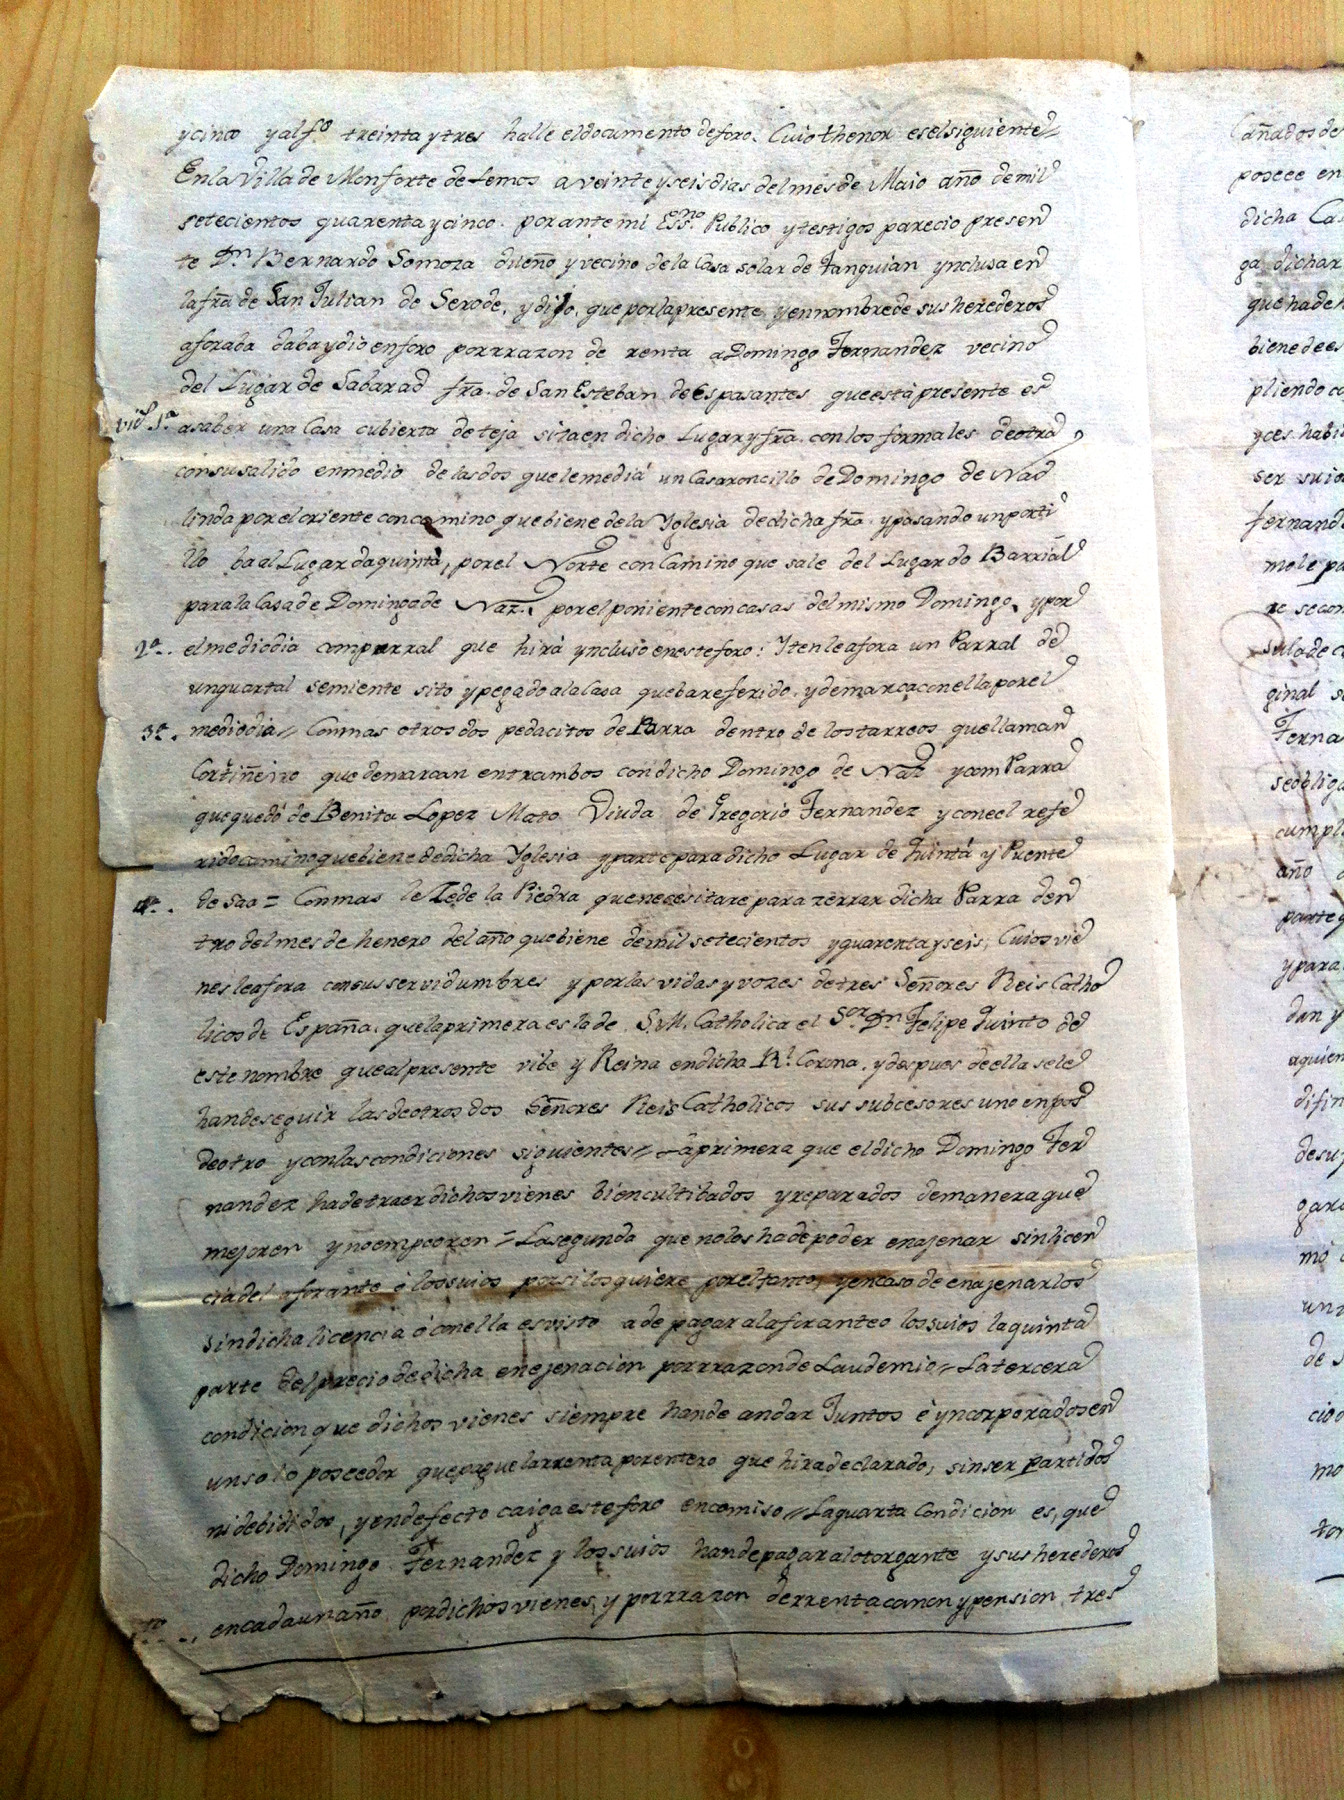 y cinco y al fº treinta y tres halle el documento de foro. Cuio thenor es el siguiente
En la Villa de Monforte de Lemos a veinte y seis dias del mes de Maio año de mil
setecientos quarenta y cinco. por ante mi Essno. Publico y testigos parecio presen
te Dn Bernardo Somoza dueño y vecino de la Casa solar de Tanguian ynclusa en
la fra de San Julian de Serode, y dijo, que por la presente, y en nombre de sus herederos
aforaba daba y dio en foro por rrazon de renta a Domingo Fernandez vecino
del Lugar de Sabarad fra. de San Esteban de Espasantes que està presente es
1ª a saber una Casa cubierta de teja sita en dicho Lugar y fra. con los formales de otra
con su salido en medio de las dos que le mediá un Casaroncillo de Domingo de Naz
linda por el oriente con camino que biene de la Yglesia de dicha fra. y pasando un porti
llo ba al Lugar da quintà, por el Norte con Camino que sale del Lugar do Barrial
para la Casa de Domingo de Naz., por el poniente con casas del mismo Domingo, y por
2ª.. el mediodia com parral que hirà yncluso en este foro: Yten le afora un Parral de
un quartal semiente sito y pegado a la Casa que ba referido, y demarca con ella por el
3ª. mediodia = Con mas otros dos pedacitos de Parra dentro de los tarreos que llaman
Cortiñeiro que demarcan entrambos con dicho Domingo de Naz y com Parra
que quedó de Benita Lopez Mato Viuda de Gregorio Fernandez y con el refe
rido camino que biene de dicha Yglesia y parte para dicho Lugar de Quintá y Puente
4ª.. de saa = Con mas le Zede la Piedra que necesitare para zerrar dicha Parra den
tro del mes de henero del año que biene de mil setecientos y quarenta y seis, Cuios vie
nes le afora con sus servidumbres y por las vidas y vozes de tres Señores Reis Catho
licos de España. que la primera es la de S.M. Catholica el Sor. Dn. Felipe Quinto de
este nombre que al presente vibe y Reina en dicha Rl. Corona, y despues de ella se le
han de seguir las de otros dos Señores Reis Catholicos sus subcesores uno en pos
de otro y con las condiciones siguientes = La primera que el dicho Domingo Fer
nandez ha de traer dichos vienes bien cultibados y reparados de manera que
mejoren y no empeoren = La segunda que no los ha de poder enajenar sin licen
cia del aforante ò los suios por si los quiere por el tanto, y en caso de enajenarlos
sin dicha licencia ò con ella es visto a de pagar al aforante o los suios la quinta
parte del precio de dicha enejenacion por rrazon de Laudemio = La tercera
condicion que dichos vienes siempre han de andar Juntos è yncorporados en
un solo poseedor que pague la rrenta por entero que hira declarado, sin ser partidos
ni debididos, y en defecto caiga este foro en comiso = La quarta Condicion es, que
dicho Domingo Fernandez y los suios han de pagar al otorgante y sus herederos
en cada un año por dichos vienes, y por rrazon de rrenta canon y pension tres